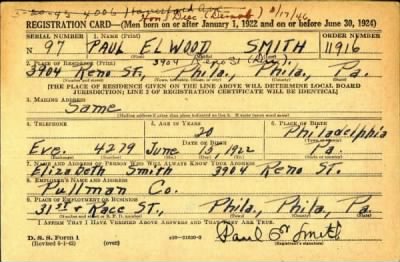 4006
REGISTRATION CARD—(Men born on or after January 1, 1922 and on or before June 30, 1924)
SERIAL NUMBER 1. NAME (Print) ORDER NUMBER
N 97 PAUL ELWOOD SMITH 11916
2. PLACE OF RESIDENCE (Print) 3904 Reno St
3904 Reno St., Phila., Phila, Pa.
[THE PLACE OF RESIDENCE GIVEN ON THE LINE ABOVE WILL DETERMINE LOCAL BOARD
JURISDICTION; LINE 2 OF REGISTRATION CERTIFICATE WILL BE IDENTICAL]
3. MAILING ADDRESS
Same
[Mailing address if other than place indicated on line 2. If same insert word same]
4. TELEPHONE 5. AGE IN YEARS 6. PLACE OF BIRTH
20 Philadelphia
DATE OF BIRTH
Eve. 4279 June 13 1922 Pa.
7. NAME AND ADDRESS OF PERSON WHO WILL ALWAYS KNOW YOUR ADDRESS
Elizabeth Smith 3904 Reno St.
8. EMPLOYER'S NAME AND ADDRESS
Pullman Co.
9. PLACE OF EMPLOYMENT OR BUSINESS
31st & Race St., Phila., Phila, Pa
I AFFIRM THAT I HAVE VERIFIED ABOVE ANSWERS AND THAT THEY ARE TRUE.
D. S. S. Form 1
(Revised 6-1-42) (over)
Paul E. Smith
(Registrant's signature)